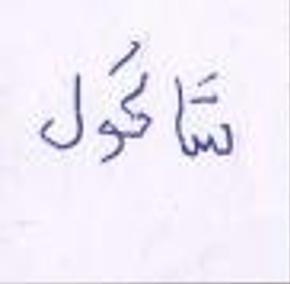 شَاكُول